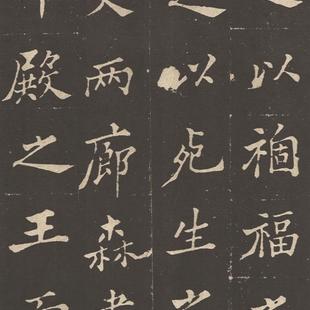 以禍福
以死生
两廊森
殿之王